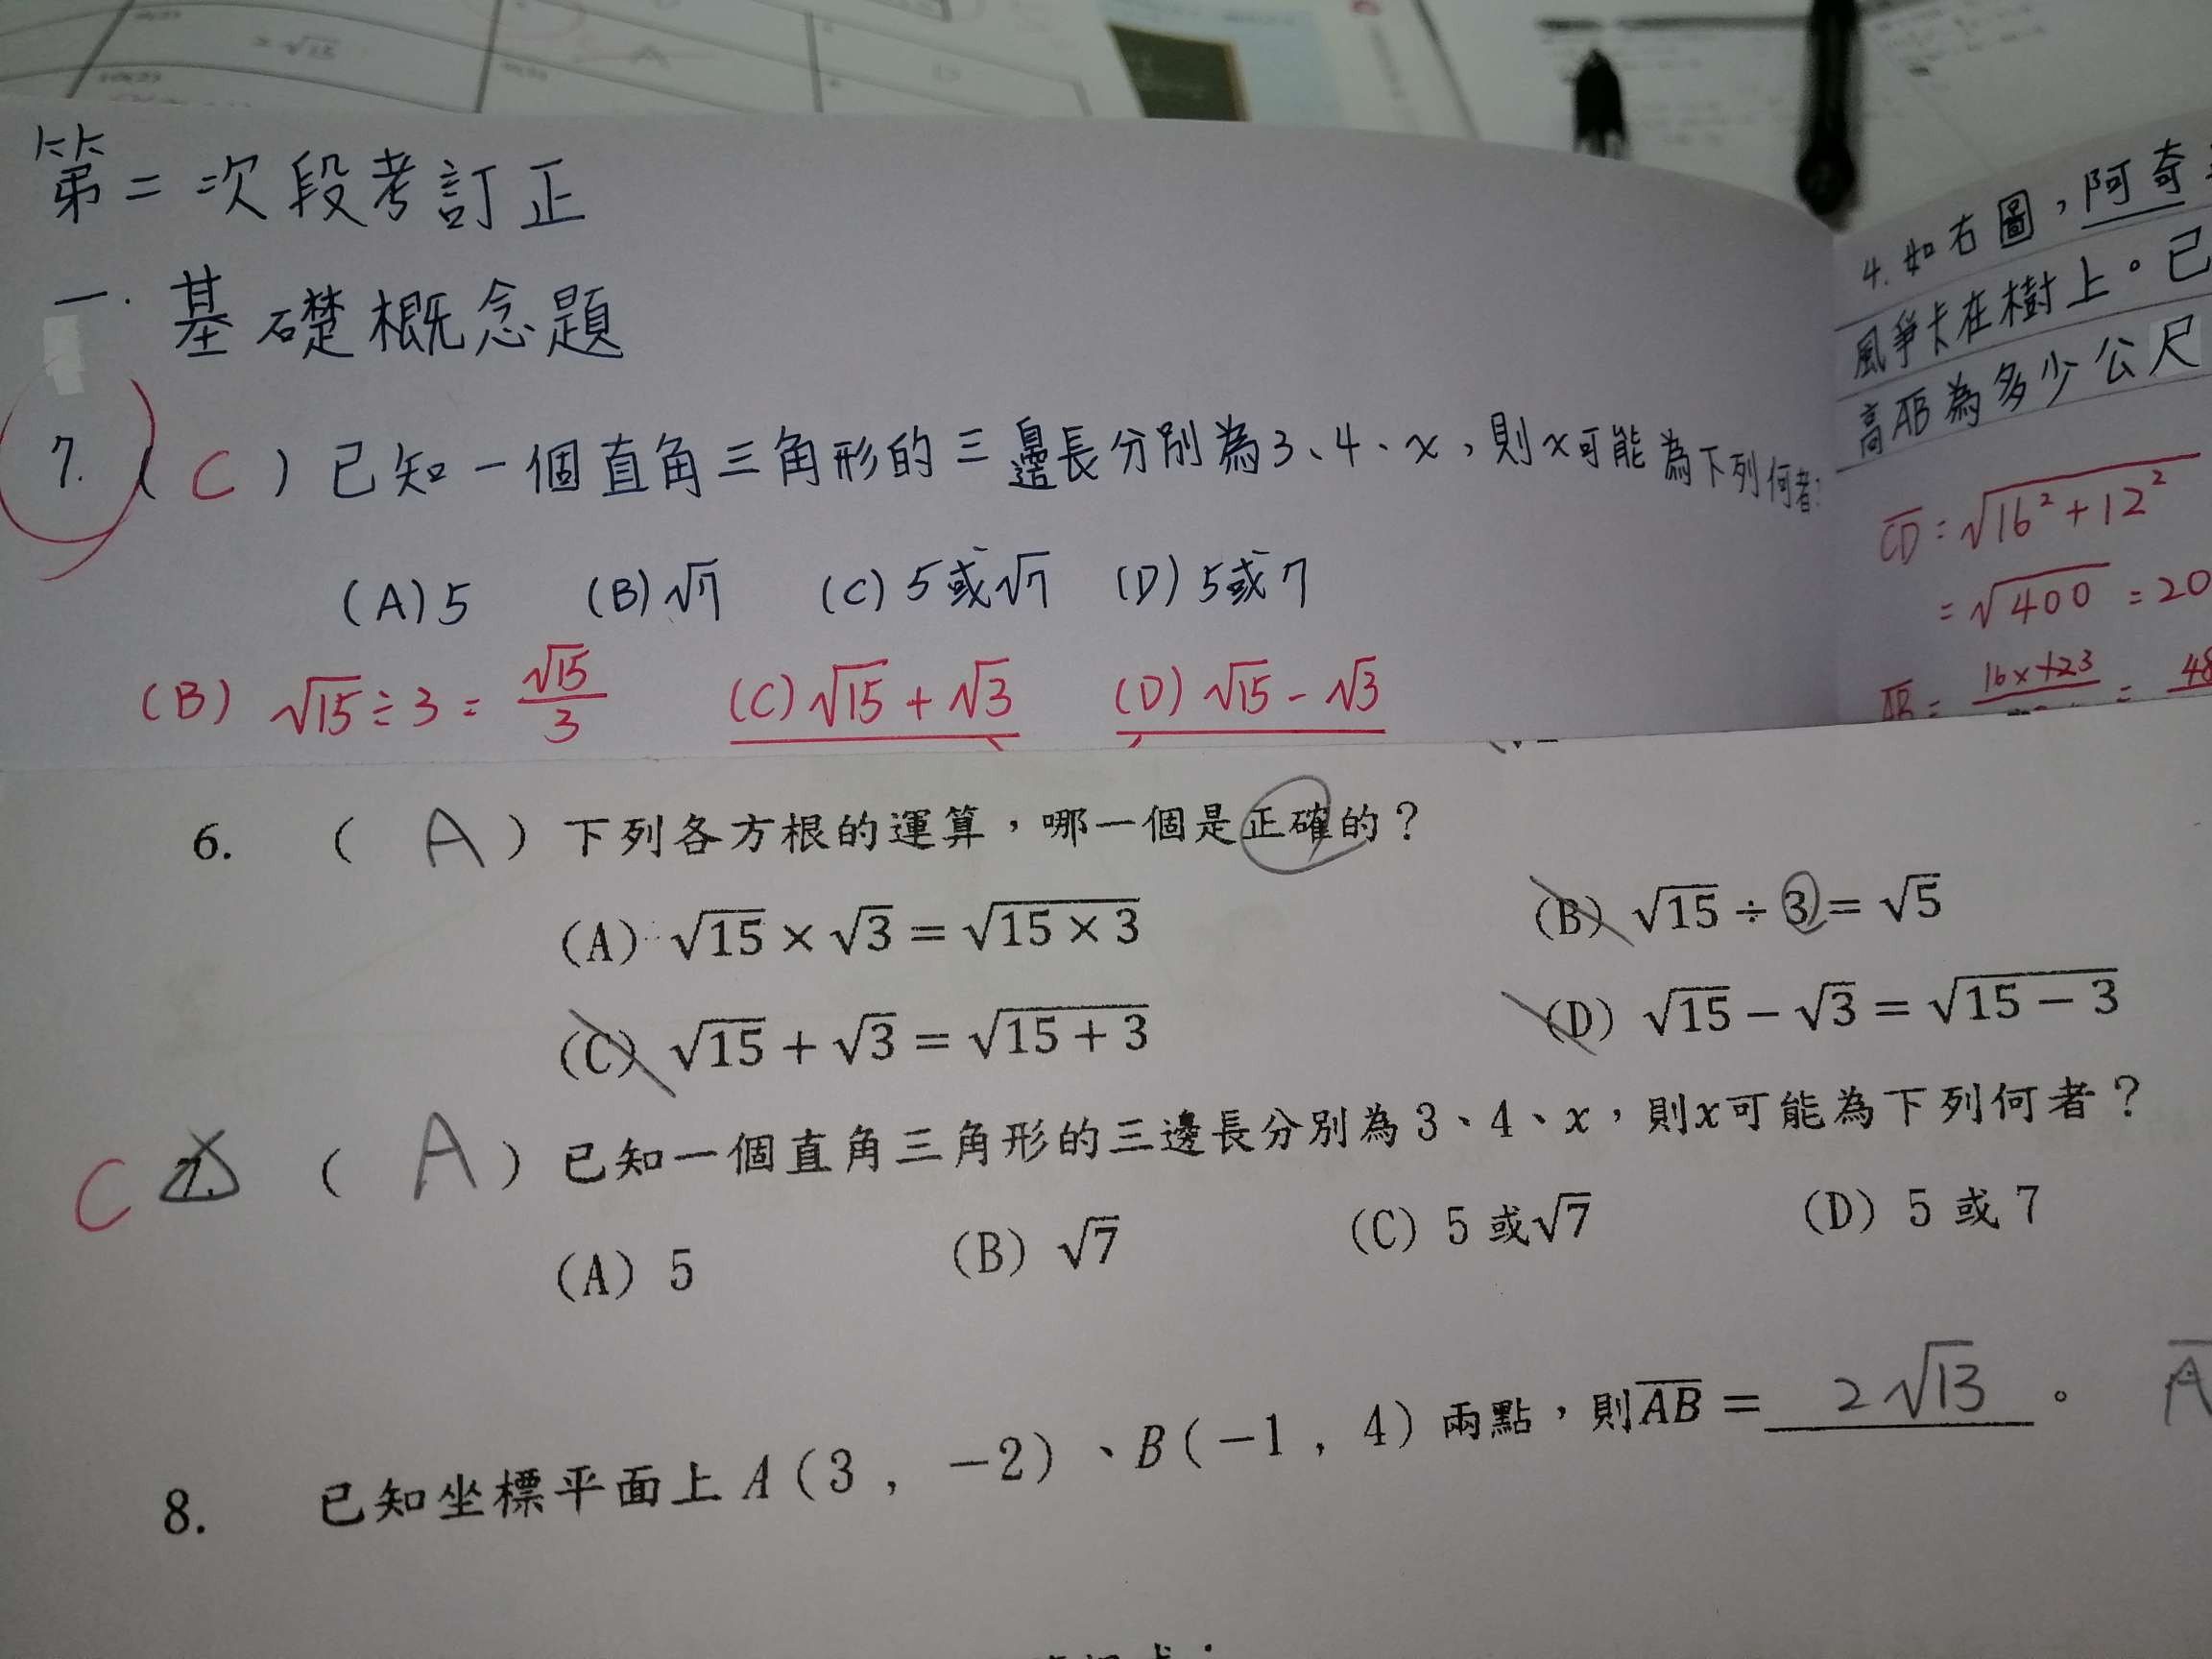 第二次段考訂正
一. 基礎概念題
7. ( C ) 已知一個直角三角形的三邊長分別為3、4、x,則x可能為下列何者?
(A) 5 (B) √7 (C) 5或√7 (D) 5或7
(B) √15÷3=√15/3 (C) √15+√3 (D) √15-√3
4. 如右圖,阿奇
風爭卡在樹上。已
高AB為多少公尺
CD=√16²+12²
=√400=20
6. ( A ) 下列各方根的運算,哪一個是正確的?
(A) √15×√3=√15×3 (B) √15÷3=√5
(C) √15+√3=√15+3 (D) √15-√3=√15-3
C 7. ( A ) 已知一個直角三角形的三邊長分別為3、4、x,則x可能為下列何者?
(A) 5 (B) √7 (C) 5或√7 (D) 5或7
8. 已知坐標平面上A(3,-2)、B(-1,4)兩點,則AB=2√13。